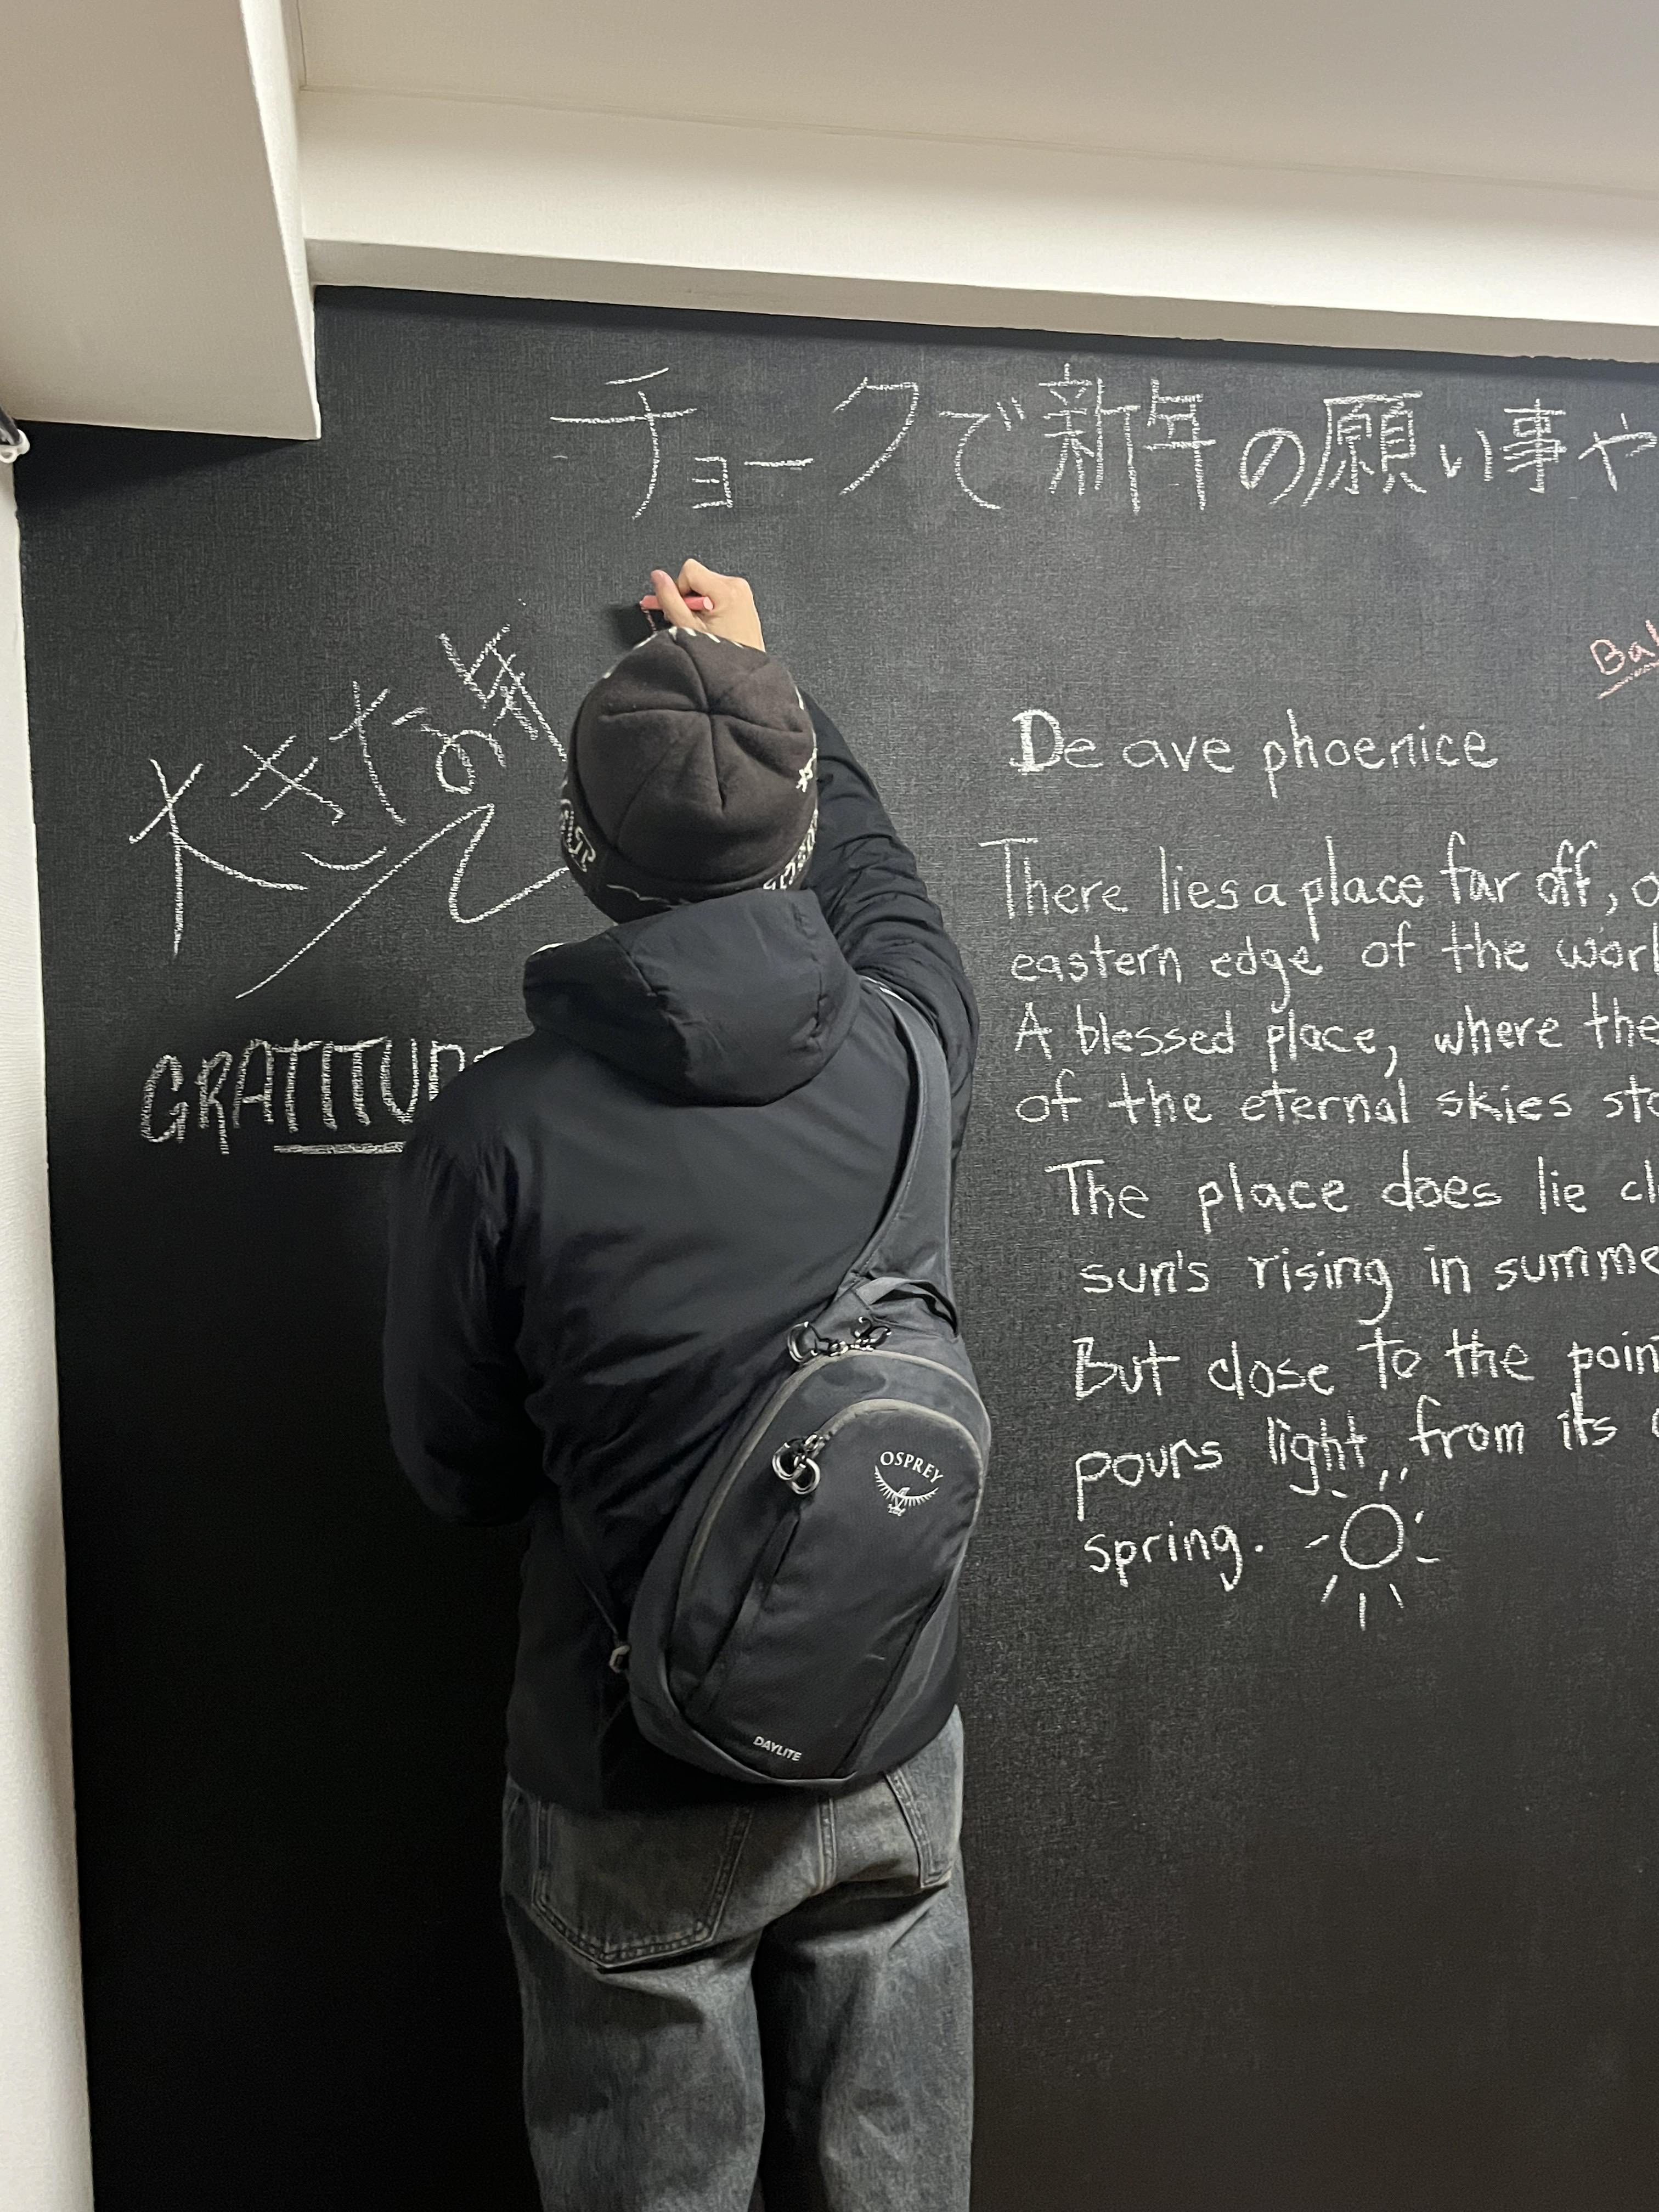 チョークで新年の願い事や
大きな
GRATITUD
De ave phoenice
There lies a place far off,
eastern edge of the
A blessed place, where the
of the eternal skies
The place does lie
sun's rising in
But close to the
pours light from its
spring.
OSPREY
DAYLITE